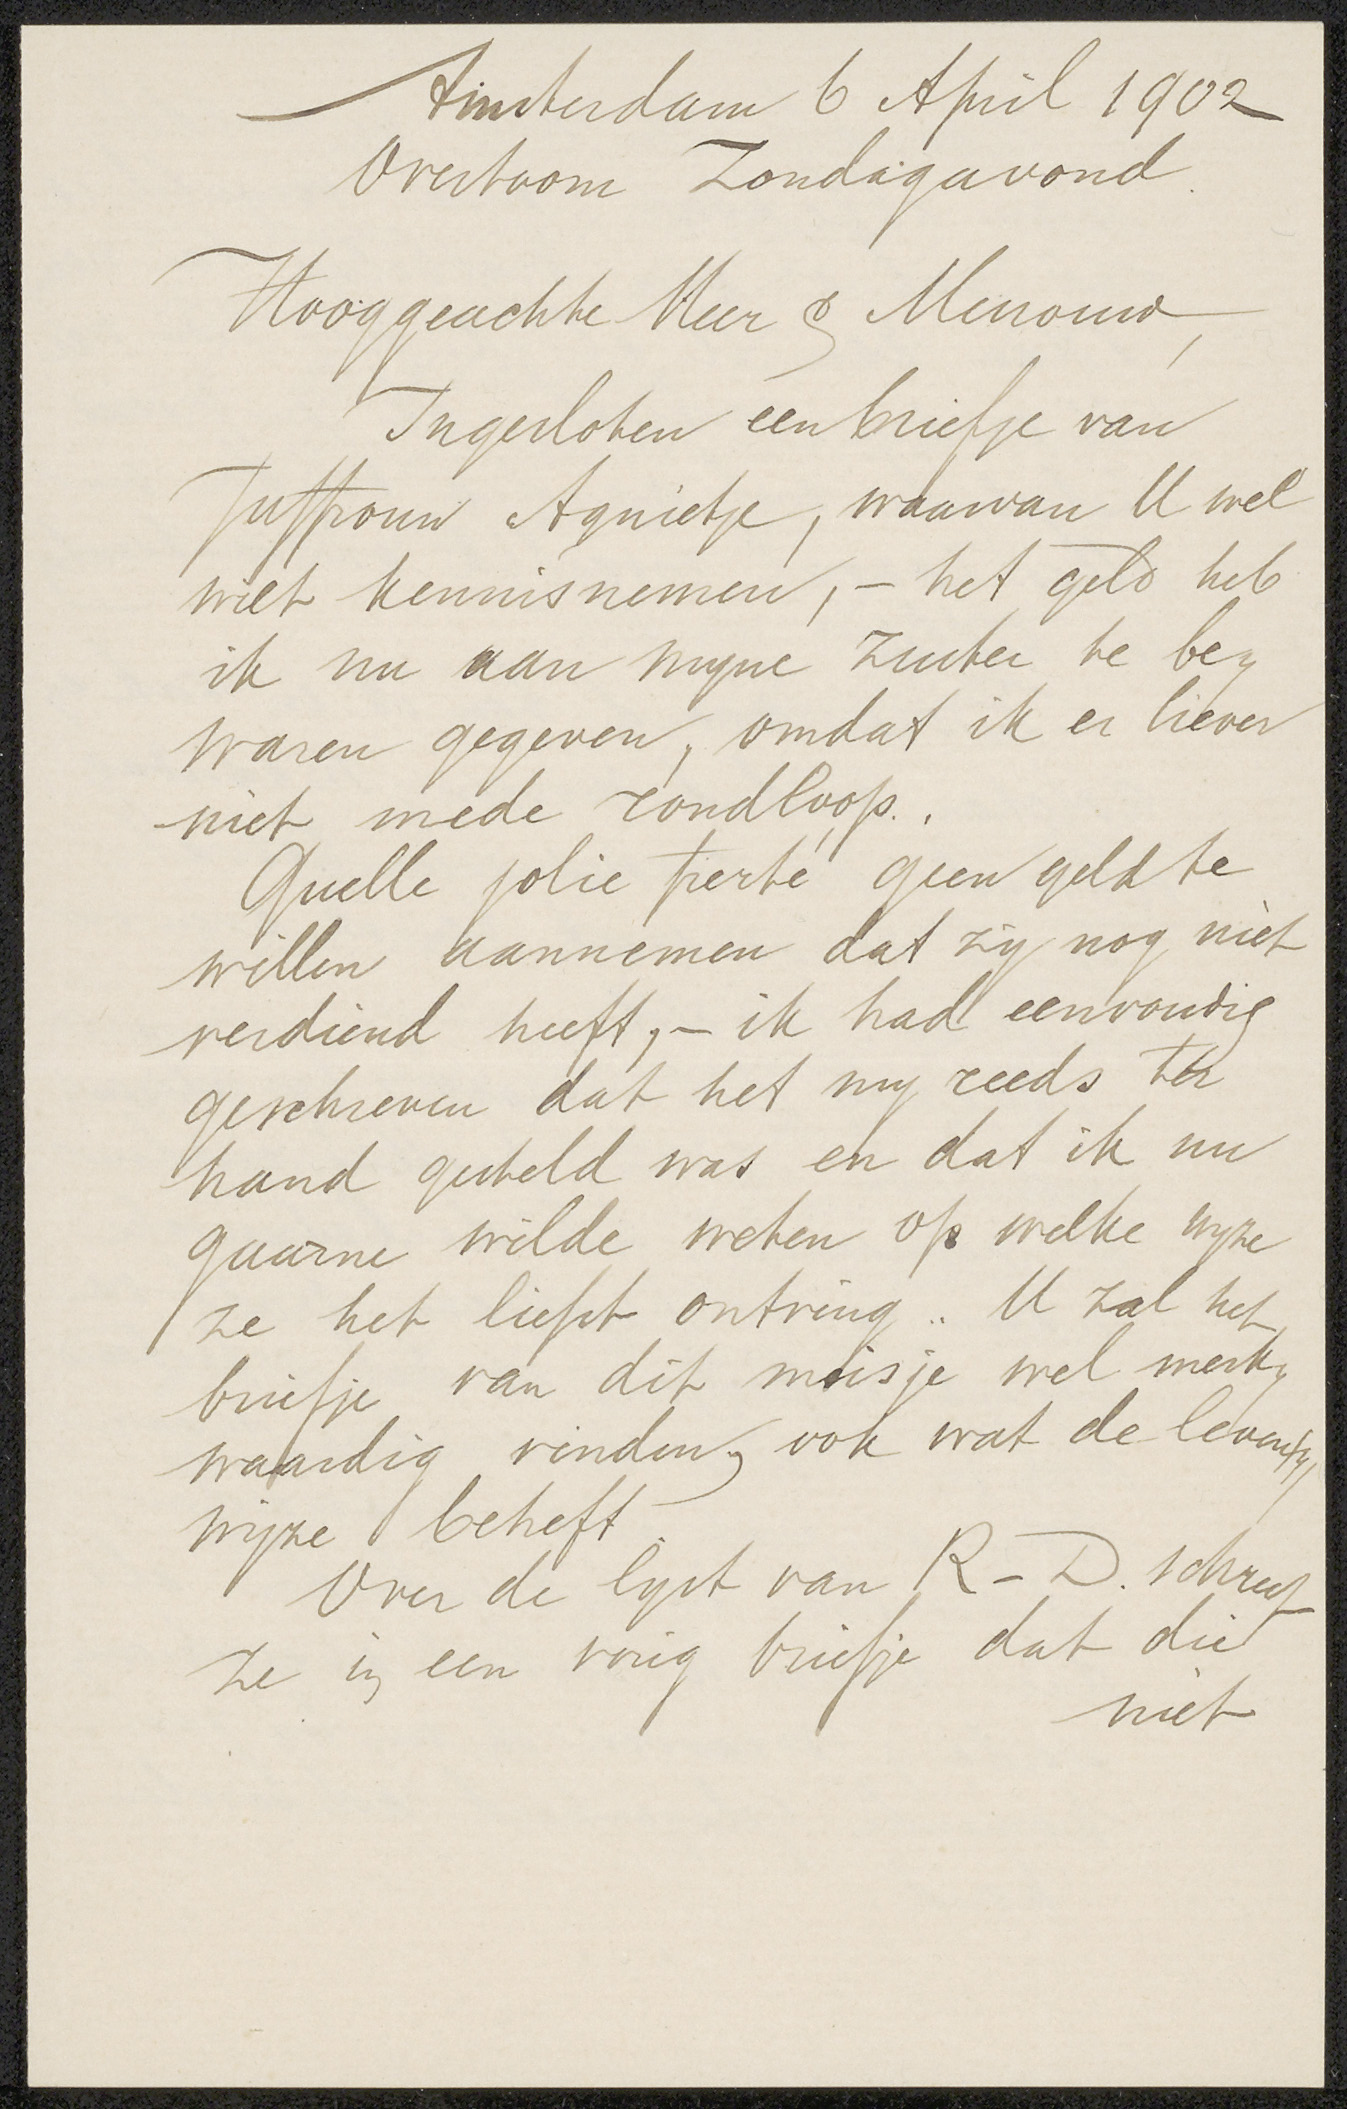 Amsterdam 6 April 1902
Overtoom Zondagavond.
Hooggeachte Heer & Mevrouw,
Ingesloten een briefje van
Juffrouw Agnietje, waarvan U wel
wilt kennisnemen, – het geld heb
ik nu aan myne zuster te be=
waren gegeven, omdat ik er liever
niet mede rondloop..
Quelle jolie fierté geen geld te
willen aannemen dat zy nog niet
verdiend heeft, – ik had eenvoudig
geschreven dat het my reeds ter
hand gesteld was en dat ik nu
gaarne wilde weten op welke wyze
ze het liefst ontving.. U zal het
briefje van dit meisje wel merk=
waardig vinden, ook wat de levens=
wijze betreft
Over de lyst van R – D. schreef
ze in een vorig briefje dat die
niet